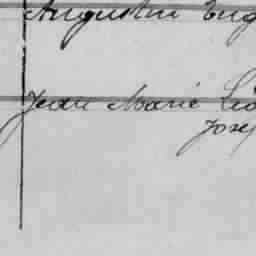 Augustin Eug
Jean Marie Léo
Josep